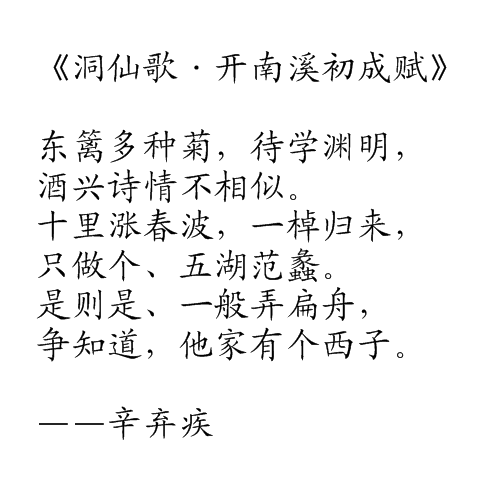 《洞仙歌·开南溪初成赋》
东篱多种菊，待学渊明，
酒兴诗情不相似。
十里涨春波，一棹归来，
只做个、五湖范蠡。
是则是、一般弄扁舟，
争知道，他家有个西子。
——辛弃疾